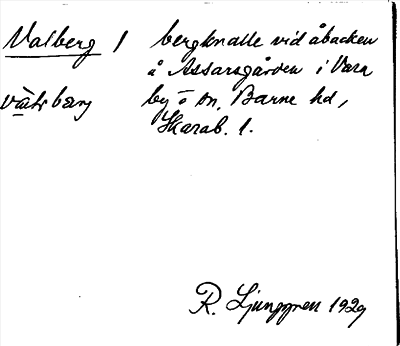 Valberg 1 bergknalle vid åbacken
å Assarsgården i Vara
by o sn, Barne hd,
Skarab. l.
R. Ljunggren 1929